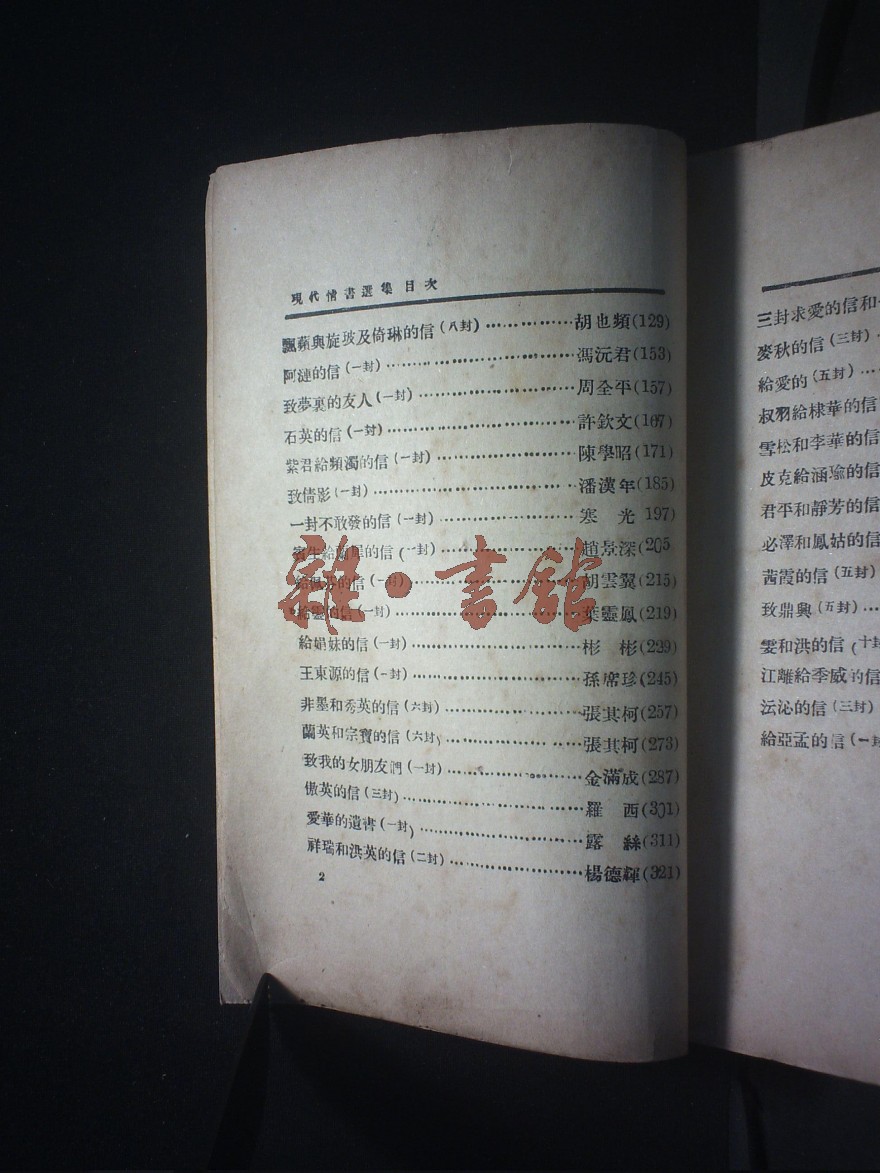 現代情書選集目次
飄蘋與旋玻及倚琳的信(八封)⋯⋯⋯⋯胡也頻(129)
阿漣的信(一封)⋯⋯⋯⋯馮沅君(153)
致夢裏的友人(一封)⋯⋯⋯⋯周全平(157)
石英的信(一封)⋯⋯⋯⋯許欽文(167)
紫君給頻濁的信(一封)⋯⋯⋯⋯陳學昭(171)
致倩影(一封)⋯⋯⋯⋯潘漢年(185)
一封不敢發的信(一封)⋯⋯⋯⋯寒 光 197)
生給里的信(一封)⋯⋯⋯⋯趙景深(205
給佩芬的信(一封)⋯⋯⋯⋯胡雲翼(215)
給靈的信(一封)⋯⋯⋯⋯葉靈鳳(219)
給娟妹的信(一封)⋯⋯⋯⋯彬 彬(229)
王東源的信(一封)⋯⋯⋯⋯孫席珍(245)
非墨和秀英的信(六封)⋯⋯⋯⋯張其柯(257)
蘭英和宗寶的信(六封)⋯⋯⋯⋯張其柯(273)
致我的女朋友們(一封)⋯⋯⋯⋯金滿成(287)
傲英的信(三封)⋯⋯⋯⋯羅 西(301)
愛華的遺書(一封)⋯⋯⋯⋯露 絲(311)
祥瑞和洪英的信(二封)⋯⋯⋯⋯楊德輝(321)
2
雜·書館
三封求愛的信和
麥秋的信(三封)
給愛的(五封)⋯
叔羽給棣華的信
雪松和李華的信
皮克給涵瑜的信
君平和靜芳的信
必澤和鳳姑的信
茜霞的信(五封)
致鼎興(五封)⋯
雯和洪的信(十封
江離給季威的信
沄沁的信(三封)
給亞孟的信(一封